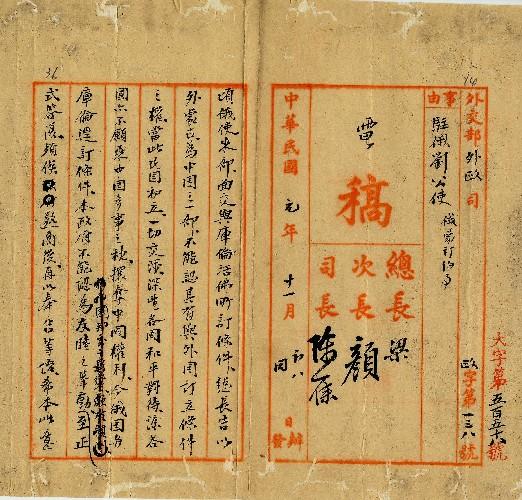 外交部外政司
事由
駐俄劉公使 俄蒙訂約事
電
稿
總長 梁
次長 顏
司長 陳籙
中華民國元年十一月初八日
同日
辦
發
大字第五百五十八號
政字第一三八號
頃俄使來部面交與庫倫活佛所訂條件總長告以
外蒙古為中國之一部不能認其有與外國訂立條件
之權當此民國初立一切交涉深望各國和平對待諒各
國亦不願乘中國多事之秋攘奪中國權利今俄國與
庫倫遽訂條件本政府不能認為友睦之舉動至正
式答復須俟
政府
商後再以奉告等語希本此意